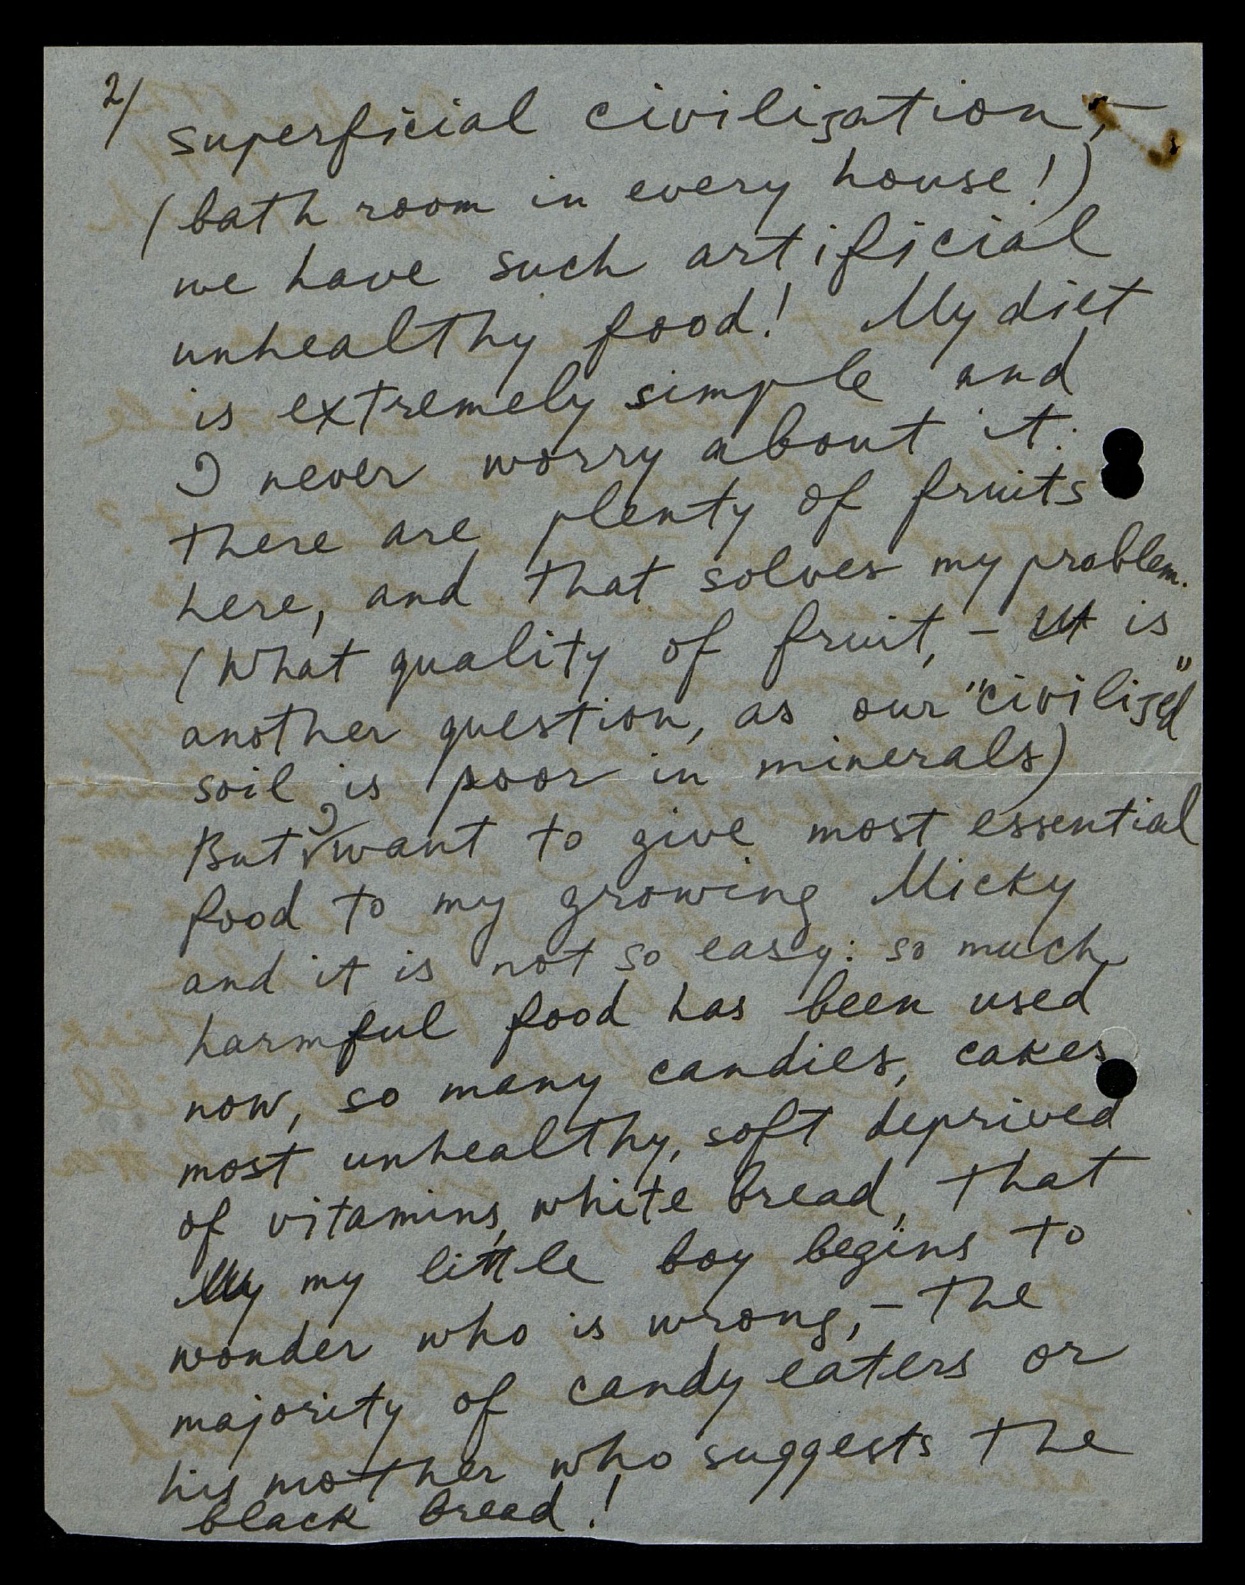 2/
superficial civilization, –
(bath room in every house!)
we have such artificial
unhealthy food! My diet
is extremely simple and
I never worry about it:
there are plenty of fruits
here, and that solves my problem.
(What quality of fruit, – it is
another question, as our "civilized"
soil is poor in minerals)
But I want to give most essential
food to my growing Micky
and it is not so easy: so much
harmful food has been used
now, so many candies, cakes
most unhealthy, soft deprived
of vitamins, white bread, that
My my little boy begins to
wonder who is wrong, – the
majority of candy eaters or
his mother who suggests the
black bread!